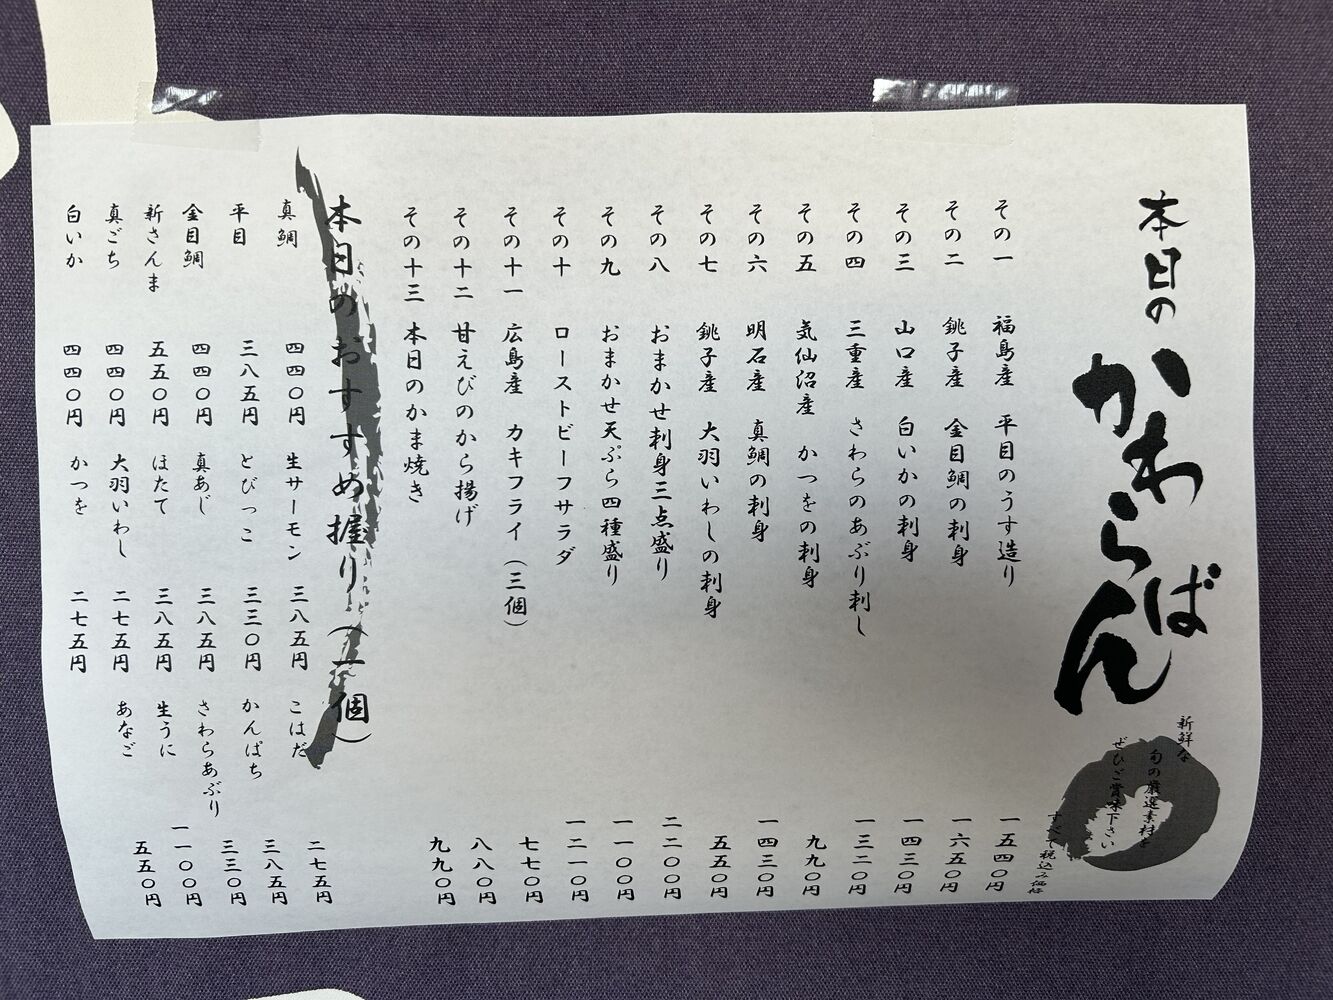 本日の
かわらばん
新鮮な
旬の厳選素材を
ぜひご賞味下さい
すべて税込み価格
その一 福島産 平目のうす造り 一五四〇円
その二 銚子産 金目鯛の刺身 一六五〇円
その三 山口産 白いかの刺身 一四三〇円
その四 三重産 さわらのあぶり刺し 一三二〇円
その五 気仙沼産 かつをの刺身 九九〇円
その六 明石産 真鯛の刺身 一四三〇円
その七 銚子産 大羽いわしの刺身 五五〇円
その八 おまかせ刺身三点盛り 二二〇〇円
その九 おまかせ天ぷら四種盛り 一一〇〇円
その十 ローストビーフサラダ 一二一〇円
その十一 広島産 カキフライ(三個) 七七〇円
その十二 甘えびのから揚げ 八八〇円
その十三 本日のかま焼き 九九〇円
本日のおすすめ握り(一個)
真鯛 四四〇円 生サーモン 三八五円 こはだ 二七五円
平目 三八五円 とびっこ 三三〇円 かんぱち 三八五円
金目鯛 四四〇円 真あじ 三八五円 さわらあぶり 三三〇円
新さんま 五五〇円 ほたて 三八五円 生うに 一一〇〇円
真ごち 四四〇円 大羽いわし 二七五円 あなご 五五〇円
白いか 四四〇円 かつを 二七五円